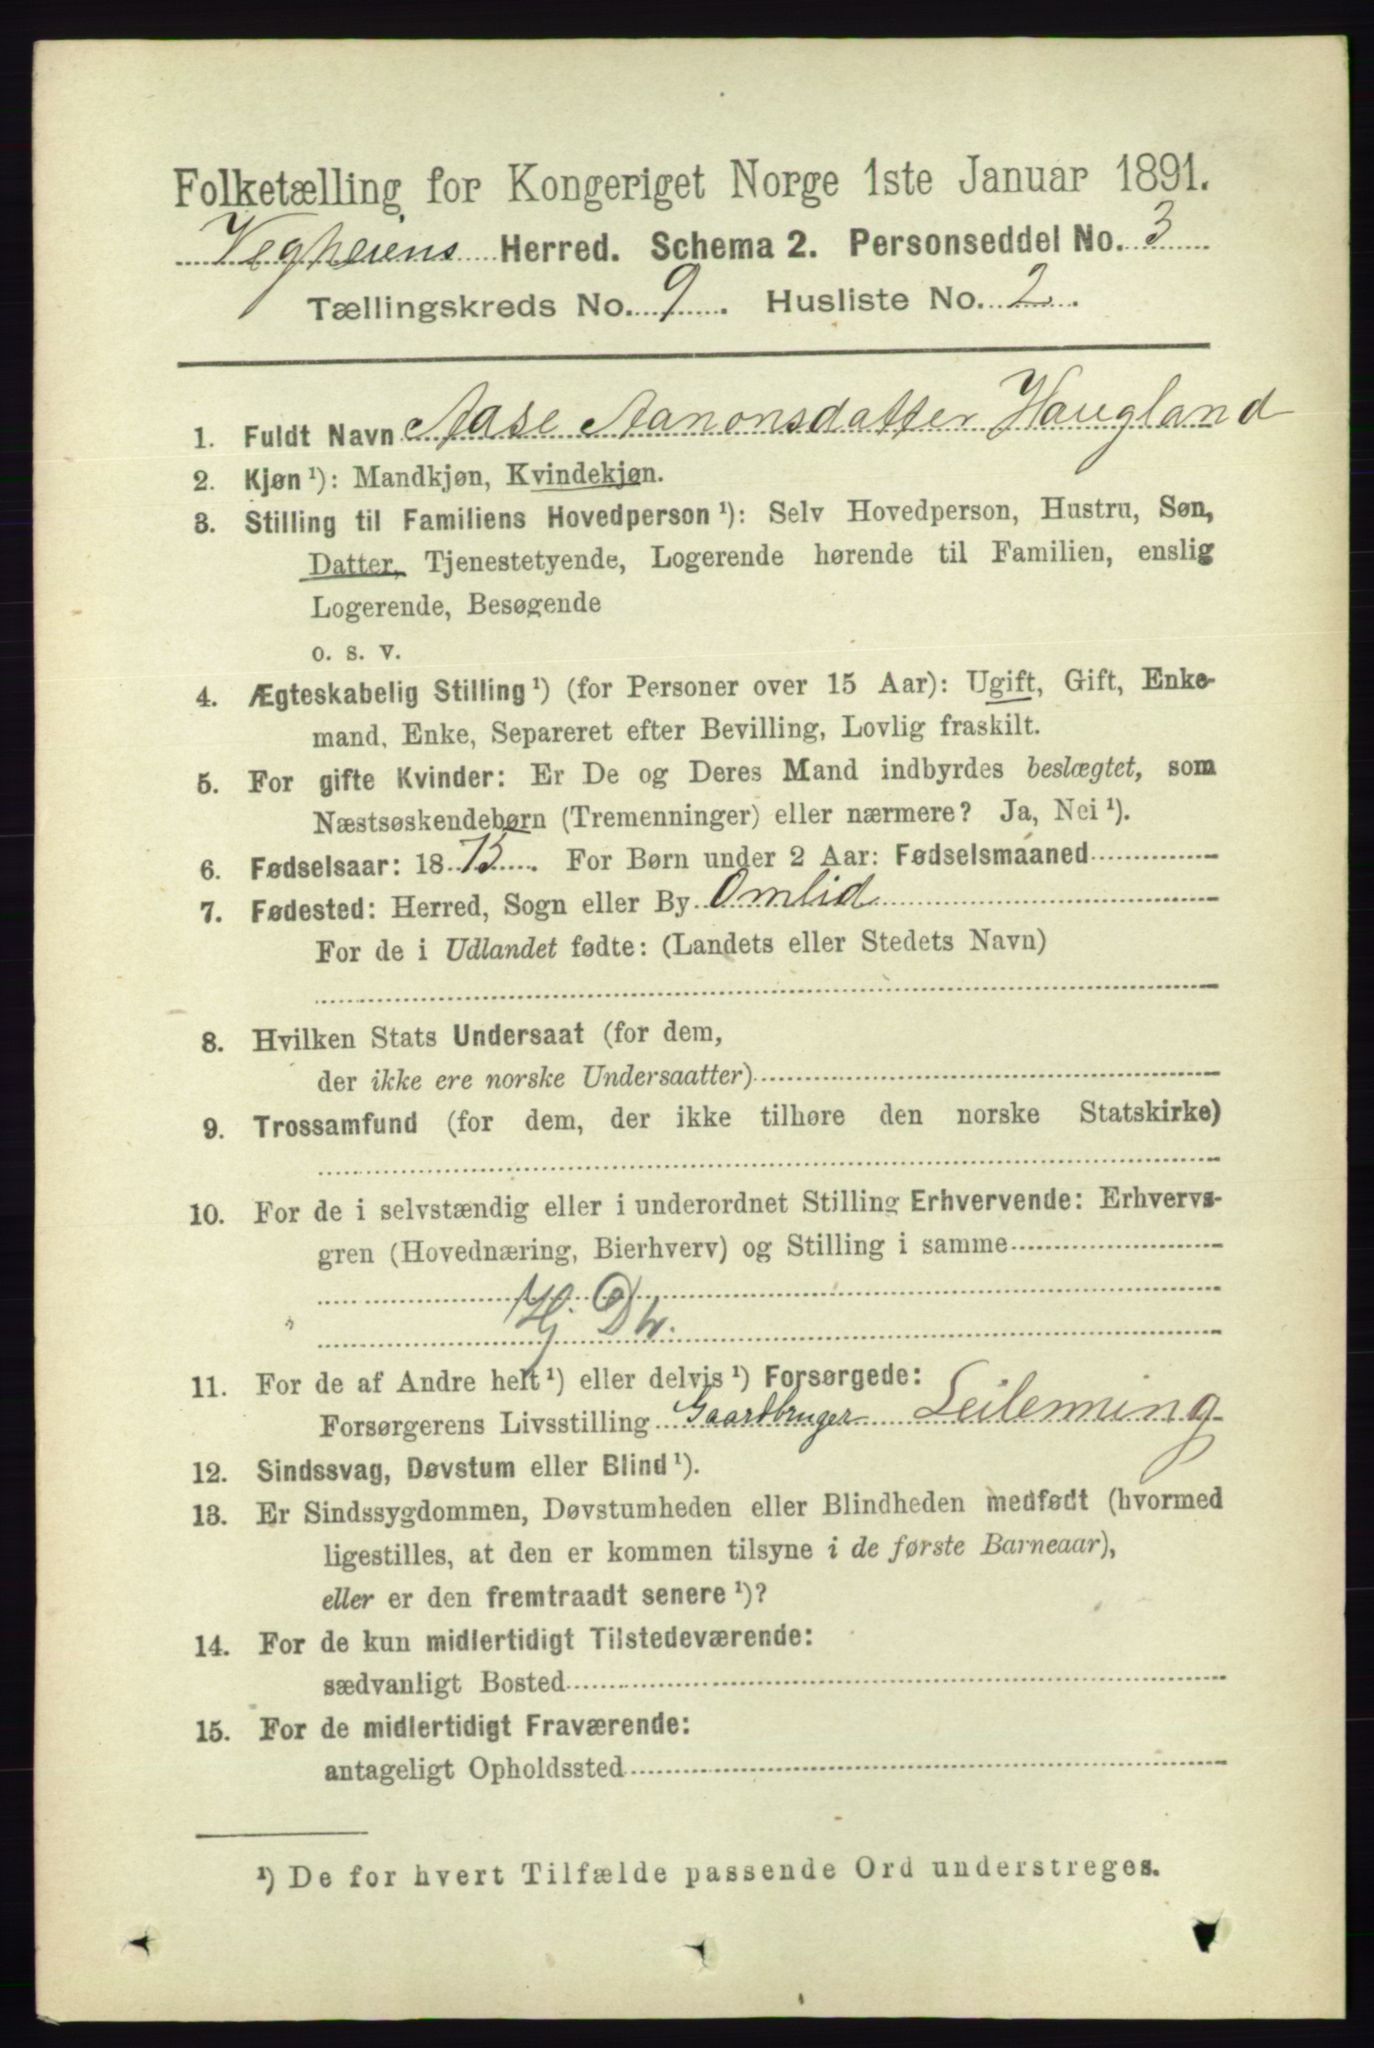 Folketælling for Kongeriget Norge 1ste Januar 1891.
Vegheiens Herred. Schema 2. Personseddel No. 3
Tællingskreds No. 9. Husliste No. 2.
1. Fuldt Navn Aase Aanonsdatter Haugland
2. Kjøn ¹): Mandkjøn, Kvindekjøn.
3. Stilling til Familiens Hovedperson ¹): Selv Hovedperson, Hustru, Søn,
Datter, Tjenestetyende, Logerende hørende til Familien, enslig
Logerende, Besøgende
o. s. v.
4. Ægteskabelig Stilling ¹) (for Personer over 15 Aar): Ugift, Gift, Enke-
mand, Enke, Separeret efter Bevilling, Lovlig fraskilt.
5. For gifte Kvinder: Er De og Deres Mand indbyrdes beslægtet, som
Næstsøskendebørn (Tremenninger) eller nærmere? Ja, Nei ¹).
6. Fødselsaar: 1873. For Børn under 2 Aar: Fødselsmaaned
7. Fødested: Herred, Sogn eller By Omlid
For de i Udlandet fødte: (Landets eller Stedets Navn)
8. Hvilken Stats Undersaat (for dem,
der ikke ere norske Undersaatter)
9. Trossamfund (for dem, der ikke tilhøre den norske Statskirke)
10. For de i selvstændig eller i underordnet Stilling Erhvervende: Erhvervs-
gren (Hovednæring, Bierhverv) og Stilling i samme
Hj. Dtr.
11. For de af Andre helt ¹) eller delvis ¹) Forsørgede:
Forsørgerens Livsstilling Gaardbruger Leilenning
12. Sindssvag, Døvstum eller Blind ¹).
13. Er Sindssygdommen, Døvstumheden eller Blindheden medfødt (hvormed
ligestilles, at den er kommen tilsyne i de første Barneaar),
eller er den fremtraadt senere ¹)?
14. For de kun midlertidigt Tilstedeværende:
sædvanligt Bosted
15. For de midlertidigt Fraværende:
antageligt Opholdssted
¹) De for hvert Tilfælde passende Ord understreges.